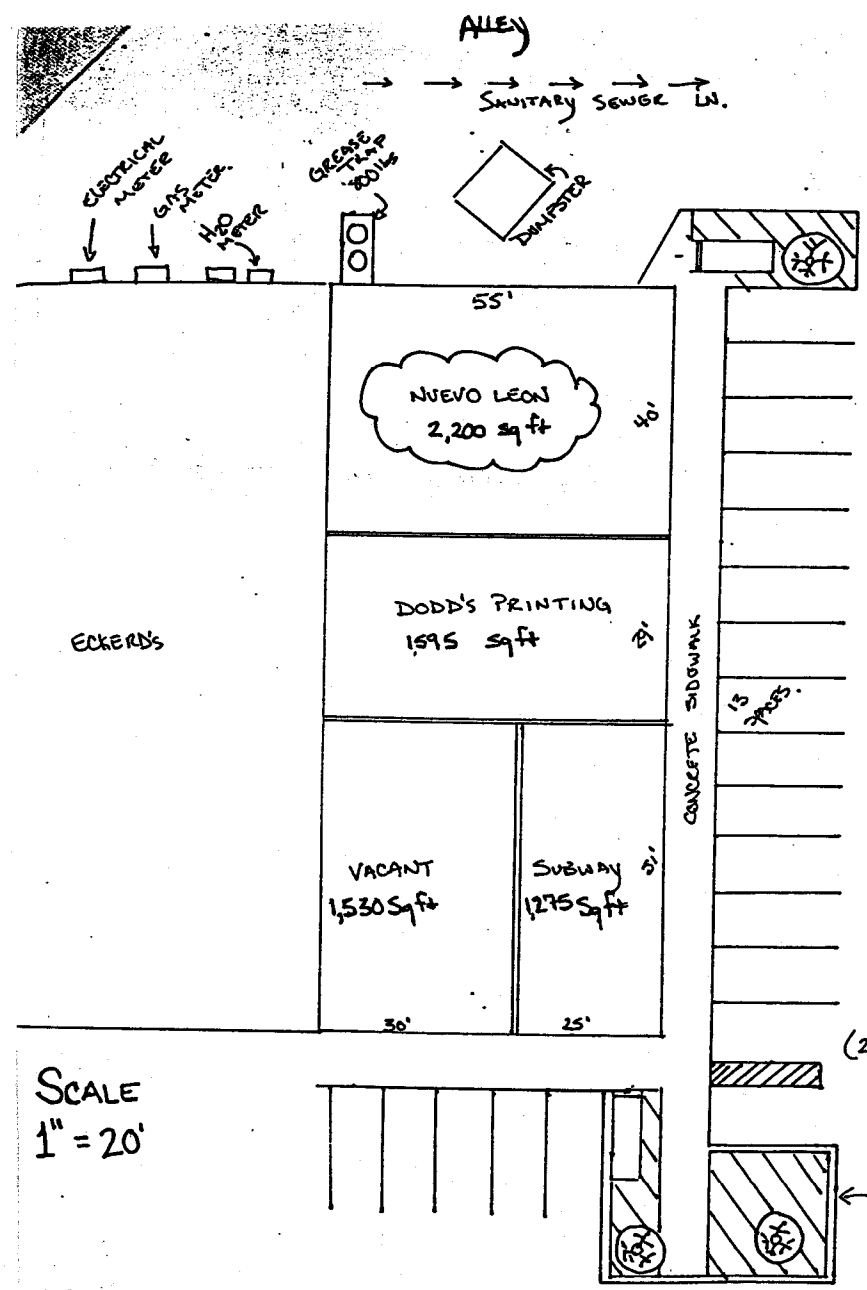 ALLEY
SANITARY SEWER LN.
ELECTRICAL
METER
GAS
METER.
H2O
METER
GREASE
TRAP
DUMPSTER
55'
NUEVO LEON
2,200 sq ft
40'
DODD'S PRINTING
1,595 sq ft
29'
ECKERD'S
CONCRETE SIDEWALK
13
SPACES.
VACANT
1,530 Sq ft
SUBWAY
1,275 Sq ft
51'
30'
25'
(2
SCALE
1" = 20'